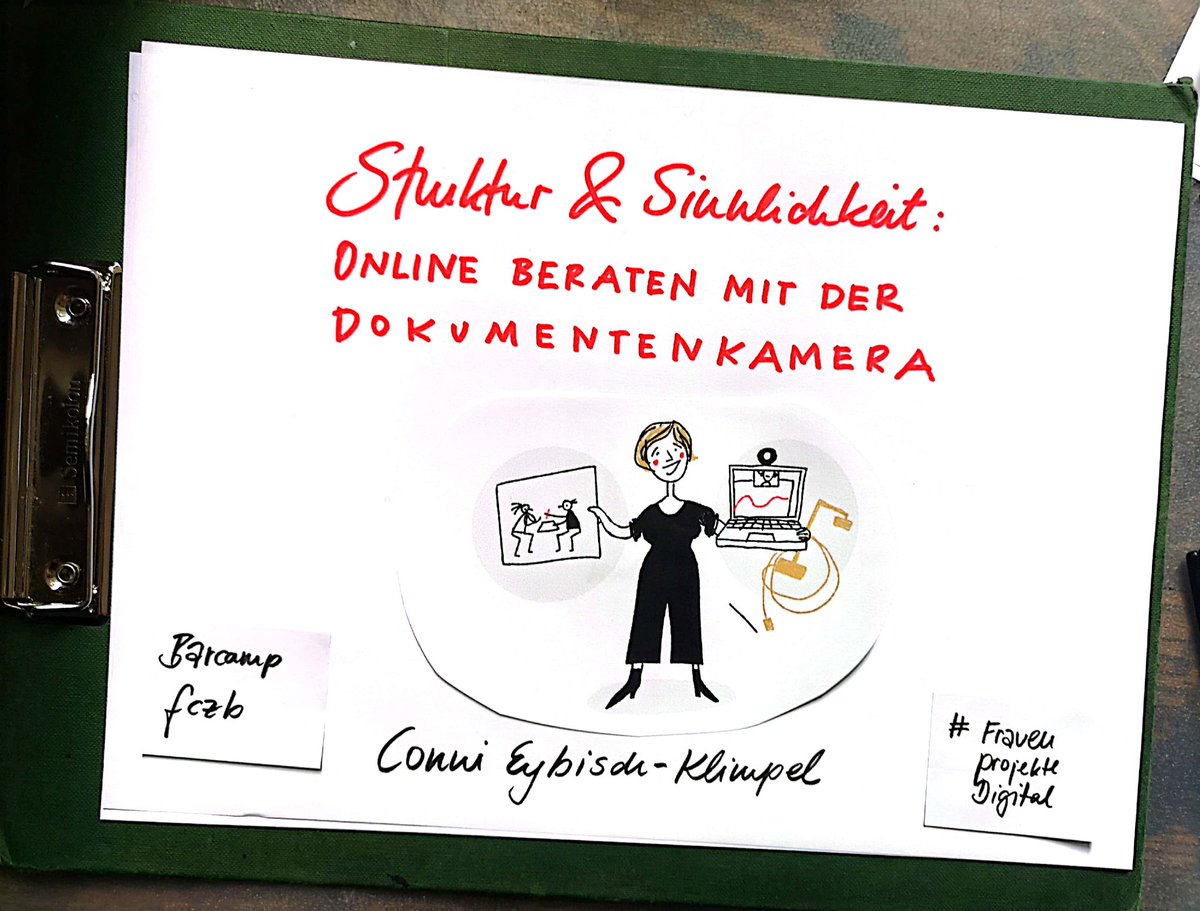 Struktur & Sinnlichkeit:
ONLINE BERATEN MIT DER
DOKUMENTENKAMERA
Semikolon
Barcamp
fczb
Conni Eybisch-Klimpel
# Frauen
projekte
Digital